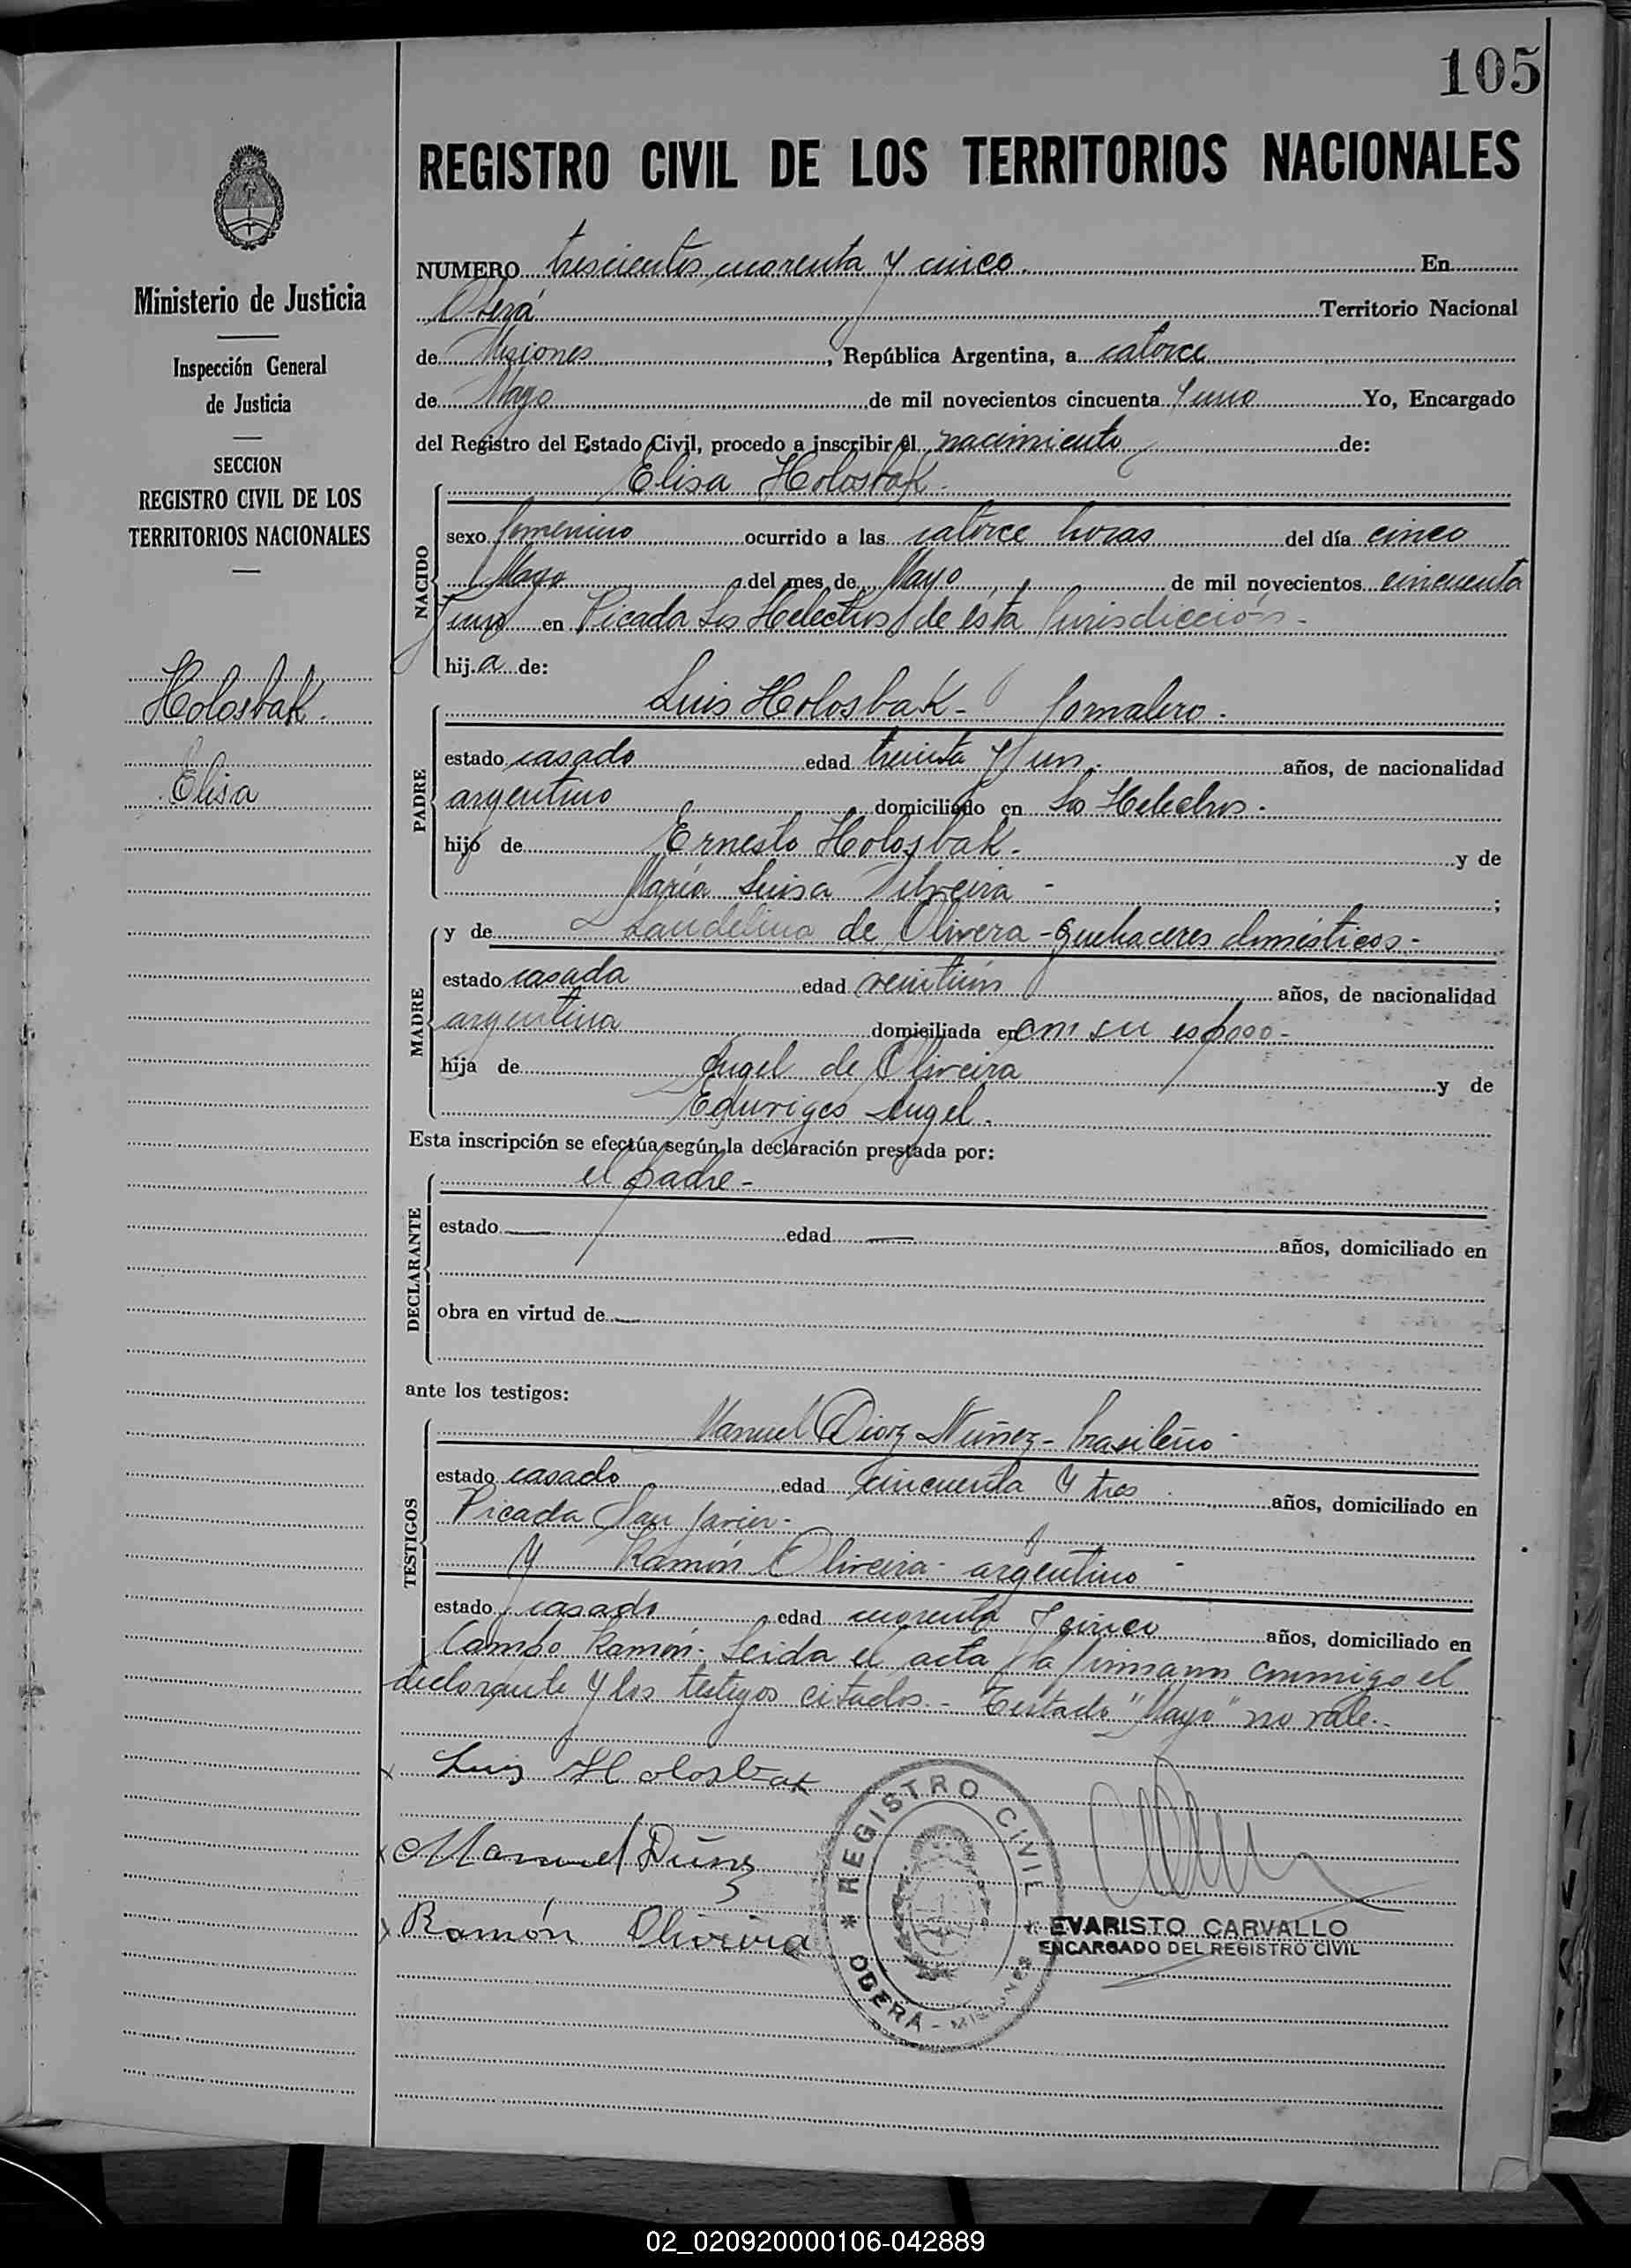 105
REGISTRO CIVIL DE LOS TERRITORIOS NACIONALES
Ministerio de Justicia
Inspección General
de Justicia
SECCION
REGISTRO CIVIL DE LOS
TERRITORIOS NACIONALES
Holosbak
Elisa
NUMERO trescientos cuarenta y cinco. En
Oberá Territorio Nacional
de Misiones, República Argentina, a catorce
de Mayo de mil novecientos cincuenta y uno Yo, Encargado
del Registro del Estado Civil, procedo a inscribir el nacimiento de:
Elisa Holosbak.
NACIDO
sexo femenino ocurrido a las catorce horas del día cinco
Mayo del mes de Mayo de mil novecientos cincuenta
y uno en Picada Los Helechos de esta Jurisdicción.
hija de:
Luis Holosbak - Jornalero.
PADRE
estado casado edad treinta y un años, de nacionalidad
argentino domiciliado en Los Helechos.
hijo de Ernesto Holosbak. y de
María Luisa Silveira - ;
y de Laudelina de Olivera - quehaceres domésticos -
MADRE
estado casada edad veintiún años, de nacionalidad
argentina domiciliada en con su esposo -
hija de Angel de Oliveira y de
Eduviges Angel.
Esta inscripción se efectúa según la declaración prestada por:
el padre -
DECLARANTE
estado — edad — años, domiciliado en
obra en virtud de —
ante los testigos:
Manuel Diorz Núñez - brasileño -
TESTIGOS
estado casado edad cincuenta y tres años, domiciliado en
Picada San Javier -
y Ramón Oliveira - argentino -
estado casado edad cuarenta y cinco años, domiciliado en
Campo Ramón. Leida el acta la firman conmigo el
declarante y los testigos citados. - Testado "Mayo" no vale. -
x Luis Holosbak
x Manuel Dúnz
x Ramón Oliveira
* REGISTRO CIVIL *
OBERÁ - MISIONES
EVARISTO CARVALLO
ENCARGADO DEL REGISTRO CIVIL
02_020920000106-042889